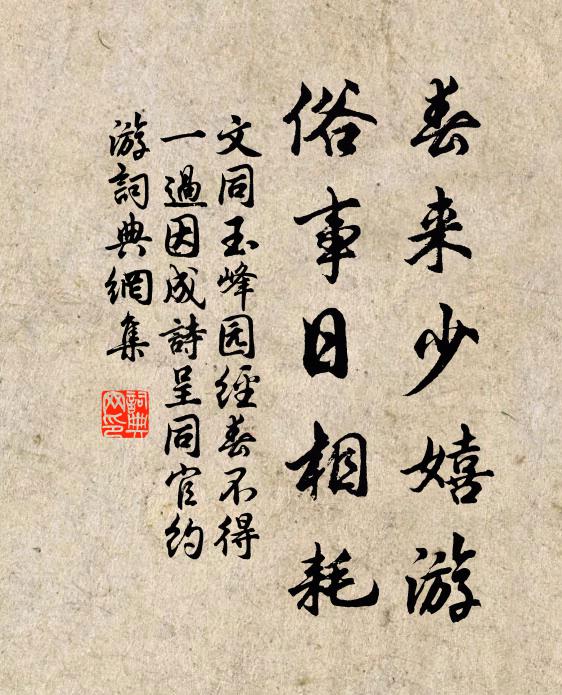 春来少嬉游
俗事日相耗
文同玉峰园經春不得
一過因成詩呈同官约
游詞典網集
詞典
网印